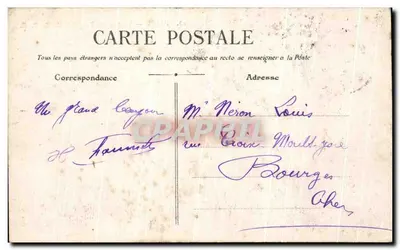 CARTE POSTALE
Tous les pays étrangers n'acceptent pas la correspondance au recto se renseigner à la Poste
Correspondance
Adresse
Un grand bonjour
Mr Néron Louis
rue Croix Moult-Joie
Bourges
Cher